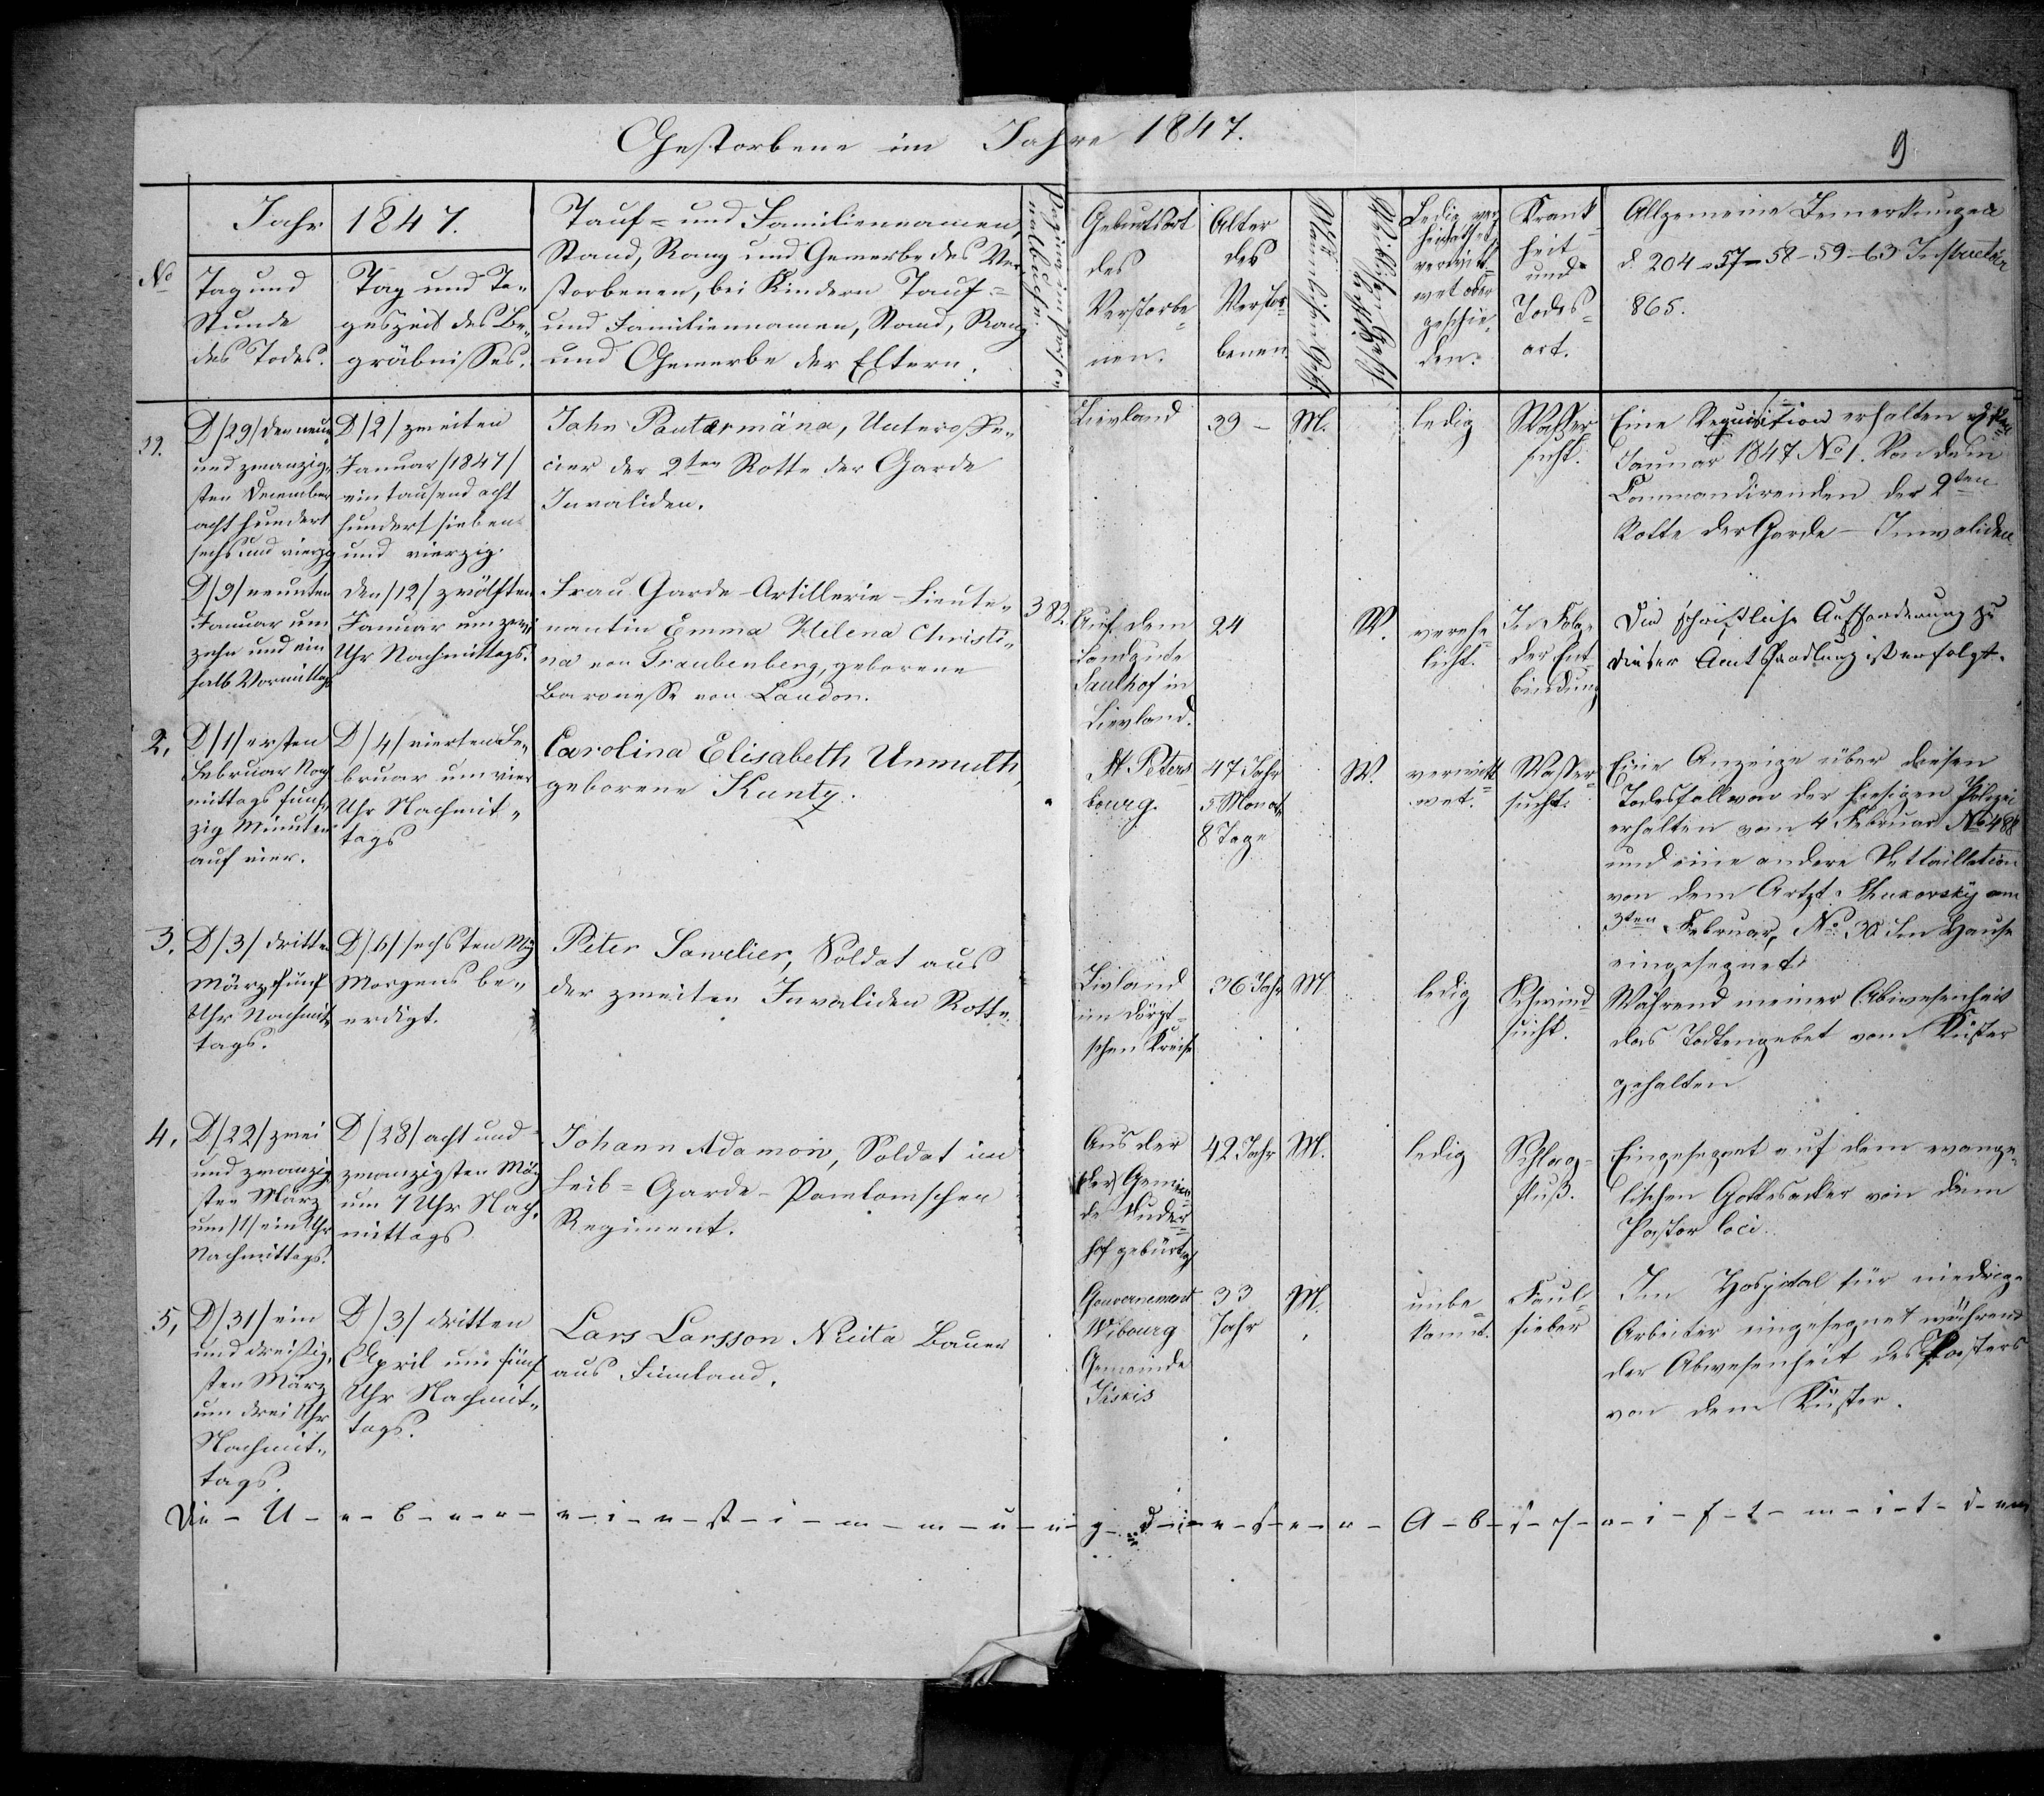 Gestorbene im Jahre 1847.
9
No
Jahr 1847.
Tag und
Stunde
des Todes.
Tag und Ta-
geszeit des Be-
gräbnisses.
Tauf- und Familiennamen,
Stand, Rang und Gewerbe des Ver-
storbenen, bei Kindern Tauf-
und Familiennamen, Stand, Rang
und Gewerbe der Eltern.
Pagina im Person
nalbuche.
Geburtsort
des
Verstorbe-
nen.
Alter
des
Verstor-
benen.
Männlichen Geschl.
Weiblichen Geschl.
Ledig ver-
heirathet,
verwitt-
wet oder
geschie-
den.
Krank-
heit
und
Todes-
art.
Allgemeine Bemerkungen
§ 204-57-58-59-63 Instruction
865.
D/29/ den neun
und zwanzig-
sten December
acht hundert
sechs und vierzig
D/2/ zweiten
Januar /1847/
ein tausend acht
hundert sieben
und vierzig.
Jahn Pautermäna, Unteroffi-
cier der 2ten Rotte der Garde
Invaliden.
Lievland
39 -
M.
ledig
Wasser
sucht.
Eine Requisition erhalten
Januar 1847 No 1. Von dem
Commandirenden der 2ten
Rotte der Garde-Invaliden
D/9/ neunten
Januar um
zehn und ein
halb Vormittags
den /12/ zwölften
Januar um zwei
Uhr Nachmittags.
Frau Garde-Artillerie-Lieute-
nantin Emma Helena Christi-
na von Traubenberg, geborene
Baronesse von Laudon.
382.
Auf dem
Landgute
Saulhof in
Lievland.
24
W.
verehe-
licht.
In Folge
der Ent-
bindung
Die schriftliche Aufforderung zu
dieser Amtshandlung ist erfolgt.
2,
D/1/ ersten
Februar Nach
mittags fünf-
zig Minuten
auf vier.
D/4/ vierten Fe-
bruar um vier
Uhr Nachmit-
tags
Carolina Elisabeth Unmuth,
geborene Kuntz.
St Peters
bourg.
47 Jahr
5 Monat
8 Tage
W.
verwitt
wet.
Wasser-
sucht.
Eine Anzeige über diesen
Todesfall von der hiesigen Polizei
erhalten vom 4 Februar No 488
und eine andere
von dem Artzt am
3ten Februar, No 30 Im Hause
eingesegnet.
3.
D/3/ dritten
März fünf
Uhr Nachmit-
tags.
D/6/ sechsten März
Morgens be-
erdigt.
Peter Sawelier, Soldat aus
der zweiten Invaliden Rotte.
Livland
im Dörpt-
schen Kreise
36 Jahr
M
ledig
Schwind-
sucht.
Während meiner Abwesenheit
das Todtengebet vom Küster
gehalten
4,
D/22/ zwei
und zwanzig-
sten März
um /1/ ein Uhr
Nachmittags.
D/28/ acht und
zwanzigsten März
um 7 Uhr Nach-
mittags
Johann Adamoin, Soldat im
Leib-Garde-Pawlowschen
Regiment.
Aus der
der Gemein-
de Duder-
hof gebürtig
42 Jahr
M.
ledig
Schlag-
fluß.
Eingesegnet auf dem evange-
lischen Gottesacker von dem
Pastor loci.
5,
D/31/ ein
und dreißig-
sten März
um drei Uhr
Nachmit-
tags.
D/3/ dritten
April um fünf
Uhr Nachmit-
tags.
Lars Larsson Bauer
aus Finnland.
Gouvernement
Wibourg
Gemeinde
33
Jahr
M.
unbe-
kannt.
Faul-
fieber
Im Hospital für niedrige
Arbeiter eingesegnet während
der Abwesenheit des Pastors
von dem Küster.
Die - U - e - b - e - r - e - i - n - st - i - m - m - u - n - g - d - i - e - s - e - r - A - b - s - ch - r - i - f - t - m - i - t - d - em